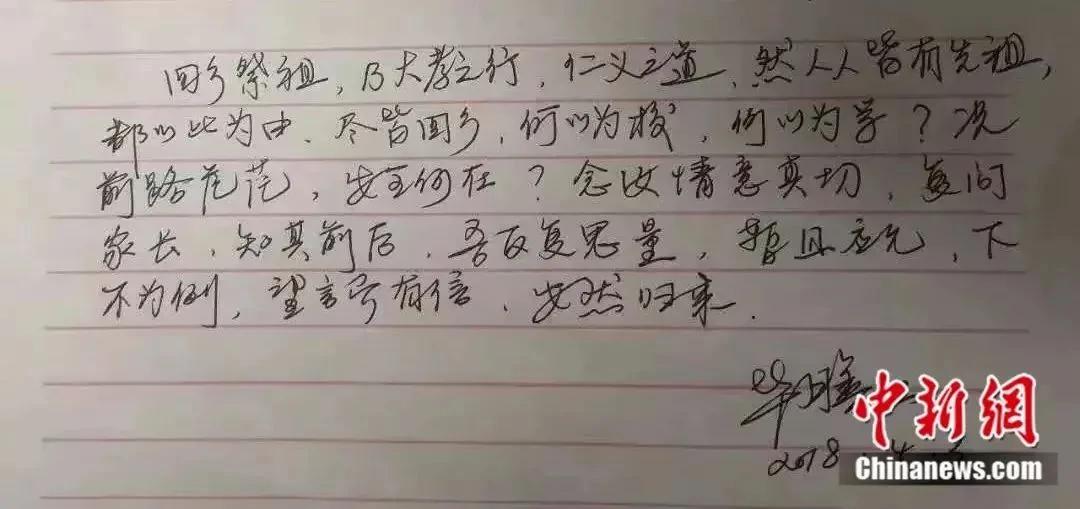 回乡祭祖，乃大孝之行，仁义之道，然人人皆有先祖，
都以此为由，尽皆回乡，何以为校，何以为学？况
前路茫茫，安全何在？念汝情意真切，复问
家长，知其前后，吾反复思量，暂且应允，下
不为例，望言而有信，安然归来．
2018
中新网
Chinanews.com